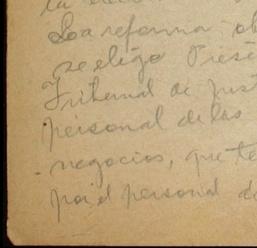 La reforma
se eligo Presi
Tribunal de just
personal de las
negocios, que te
por el personal de